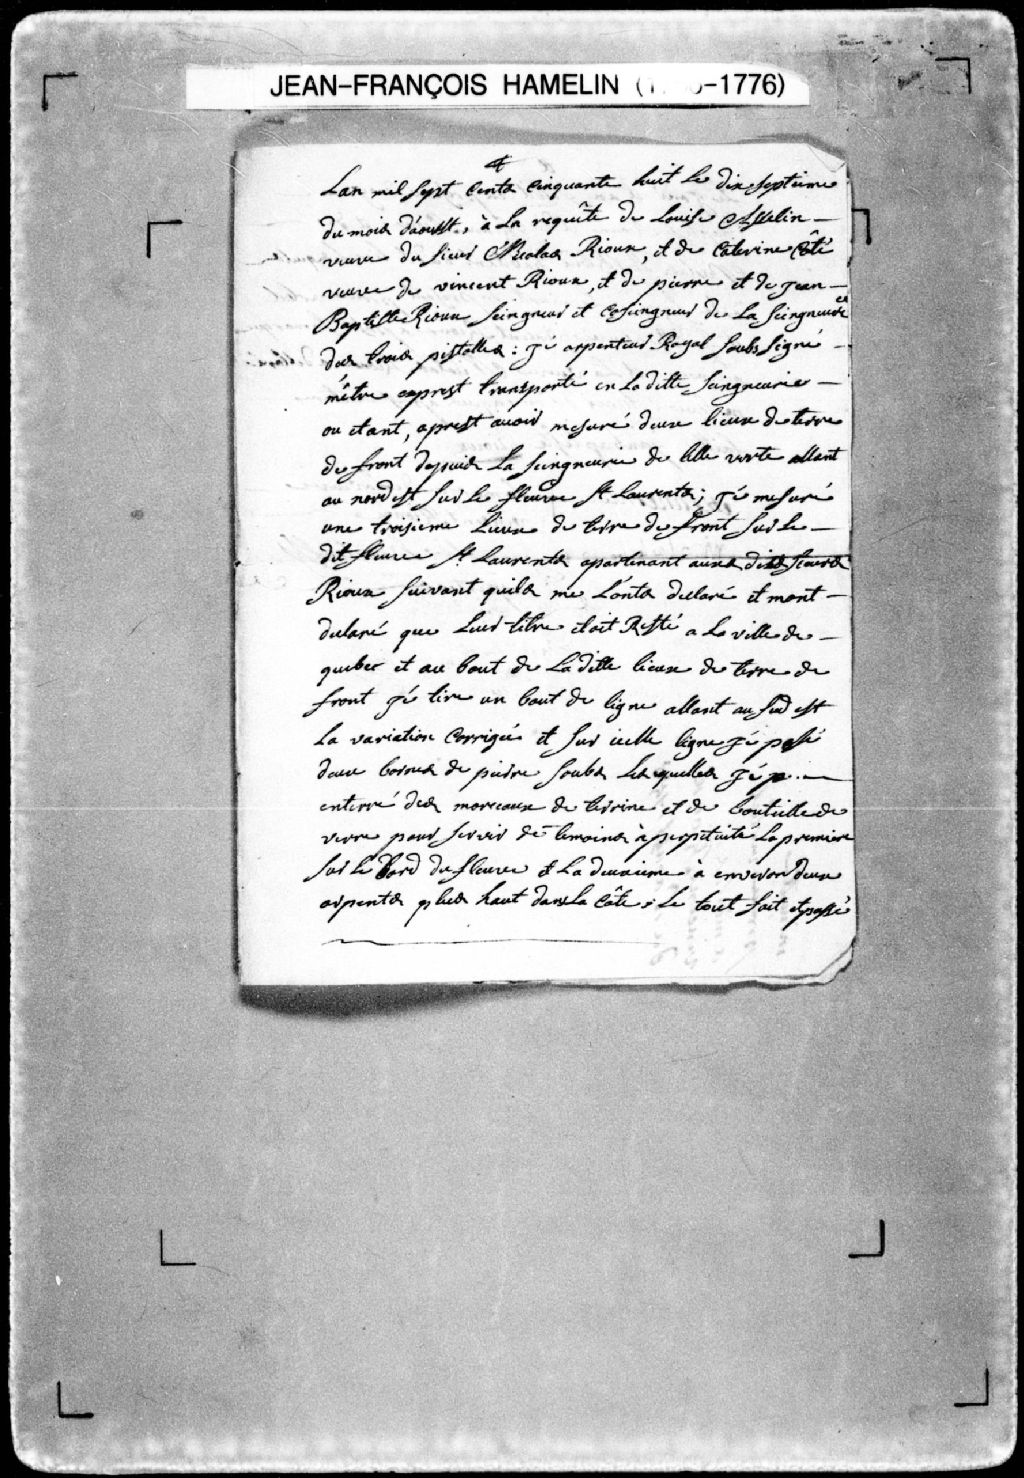 JEAN-FRANÇOIS HAMELIN (1 -1776)
Lan mil sept cents cinquante huit le dix septieme
du mois d'aoust, à la requête de Louise Asselin
veuve du sieur Nicolas Rioux, et de Caterine Côté
veuve de vincent Rioux, et de pierre et de jean
Baptiste Rioux seingneur et coseingneur de La seingneurie
des trois pistolles : j'é arpenteur Royal soubs signé
mêtre aprest transporté en La ditte seingneurie
ou etant, aprest avoir mesuré deux lieux de terre
de front depuis La seingneurie de lille verte allant
au nordest sur le fleuve st Laurents ; j'é mesuré
une troisieme Lieux de terre de front sur le
dit fleuve st Laurents apartenant auxs dits sieurs
Rioux suivant quils me L'onts declaré et mont
declaré que Leur titre etoit Resté a La ville de
quebec et au bout de La ditte lieux de terre de
front j'é tiré un bout de ligne allant au sud est
La variation Corrigée et sur icelle ligne j'é possé
deux bornes de pierre soubs Lesquelles j'é
enterré des morceaux de terrine et de bouteille de
verre pour servir de temoins à perpetuité La premiere
sur Le Bord du fleuve et La deuxieme à environ deux
arpents plus haut dans La Côte ; Le tout fait et passé